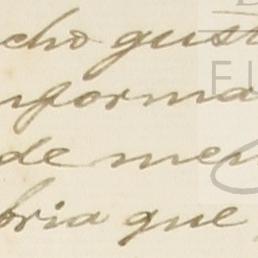 cho gust
nforma
de mem
oria que